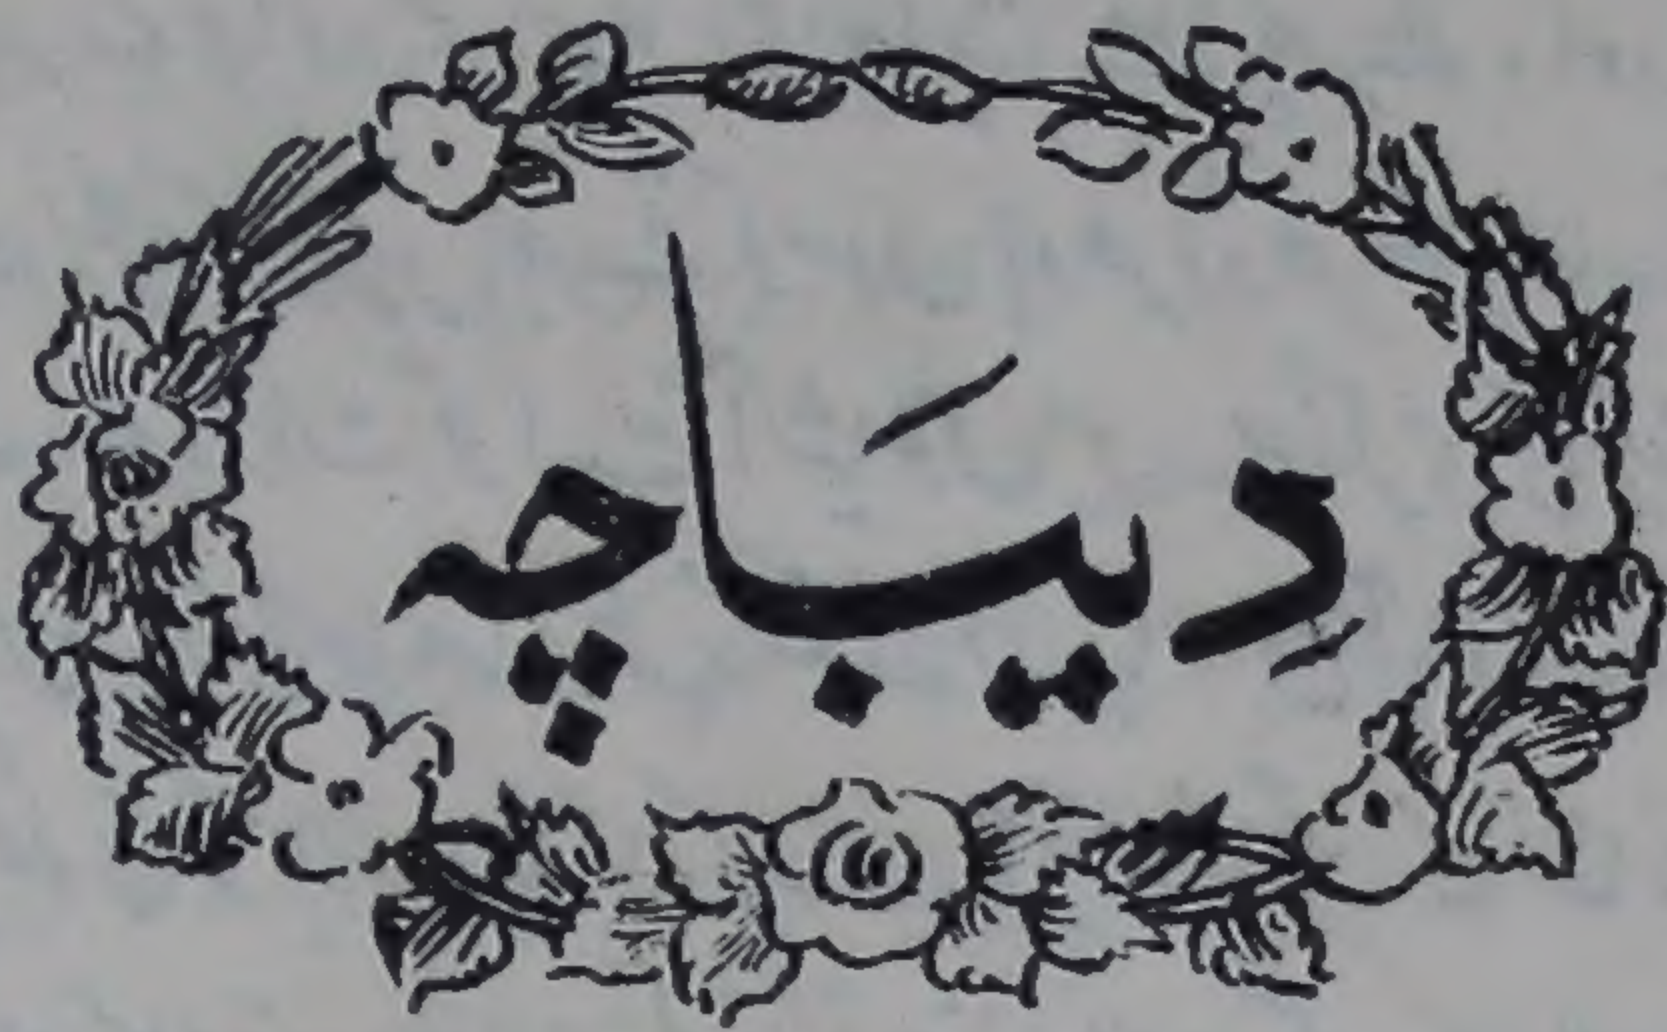 دِیبَاچہ